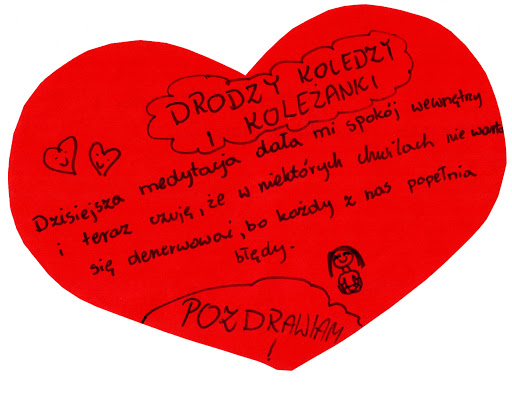 DRODZY KOLEDZY
I KOLEŻANKI
Dzisiejsza medytacja dała mi spokój wewnętrzy
i teraz czuję, że w niektórych chwilach nie warto
się denerwować, bo każdy z nas popełnia
błędy.
POZDRAWIAM
!